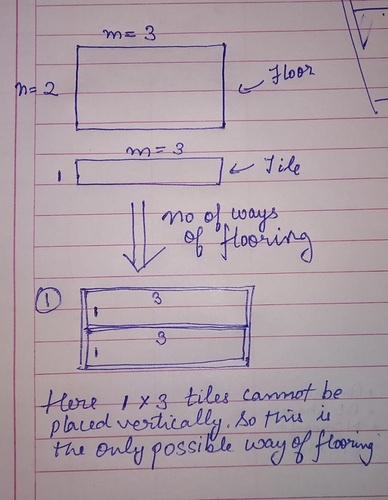 m = 3
n = 2
Floor
m = 3
1
Tile
no of ways
of flooring
1
3
1
3
1
Here 1 x 3 tiles cannot be
placed vertically. So this is
the only possible way of flooring